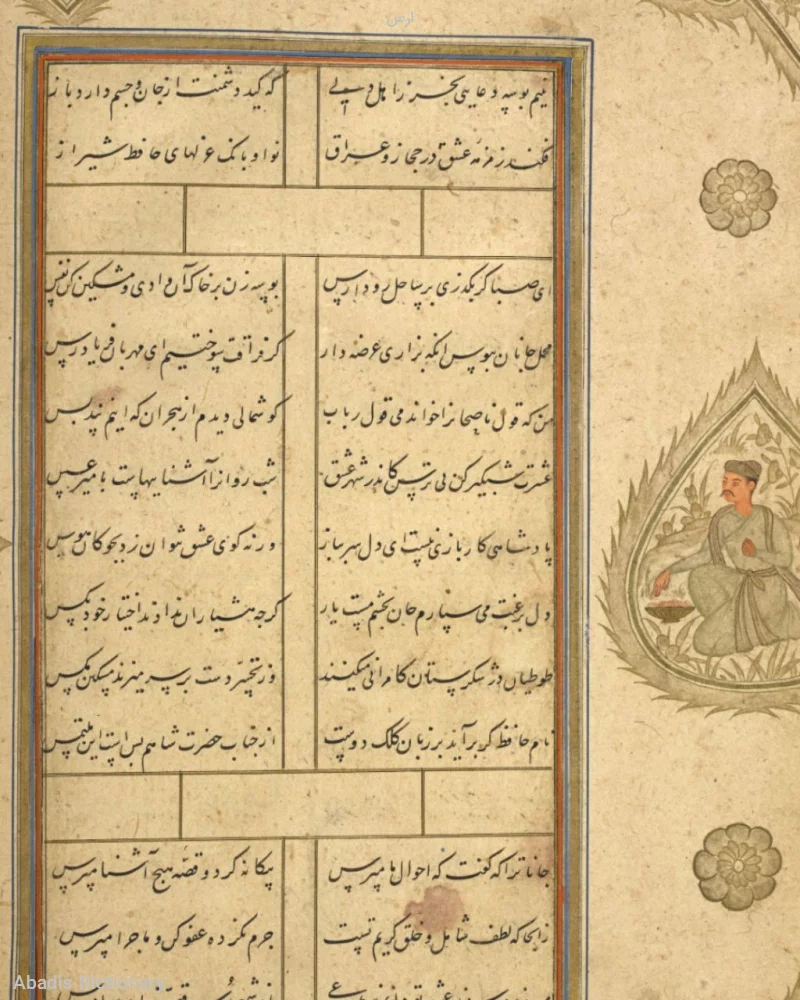 ارس
نیم بوسه دعایی بخر ز اهل دلی که کید دشمنت از جان و جسم دارد باز
فکند زمزمه عشق در حجاز و عراق نوا و بانک غزلهای حافظ شیراز
ای صبا کر بکذری بر ساحل رود ارس بوسه زن بر خاک آن وادی و مشکین کن نفس
محمل جانان ببوس آنکه بزاری عرضه دار کز فراقت سوختیم ای مهربان فریاد رس
من که قول ناصحانرا خواندمی قول رباب کوشمالی دیدم از هجران که اینم پند بس
عشرت شبکیر کن بی ترس کاندر شهر عشق شب روانرا آشناییهاست با میر عسس
پادشاهی کار بازی نیست ای دل سر بباز ورنه کوی عشق نتوان زد بچوکان هوس
دل برغبت می سپارم جان بچشم مست یار کرچه هشیاران ندادند اختیار خود بکس
طوطیان در شکرستان کامرانی میکنند وز تحیر دست بر سر میزند مسکین مکس
نام حافظ کر برآید بر زبان کلک دوست از جناب حضرت شاهم بس است این ملتمس
جانا ترا که کفت که احوال ما مپرس بیکانه کرد و قصه هیچ آشنا مپرس
زانجا که لطف شامل و خلق کریم تست جرم نکرده عفو کن و ماجرا مپرس
Abadis Dictionary